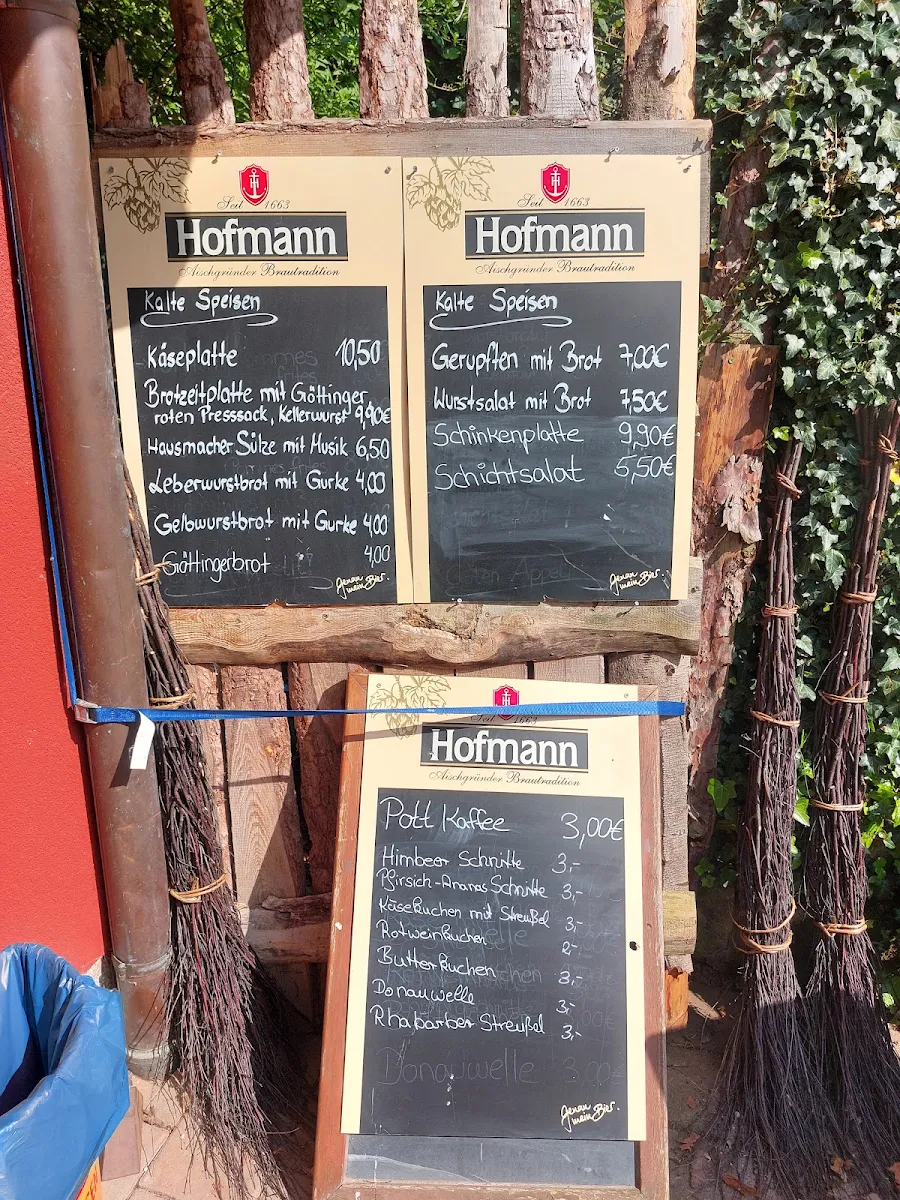 Seit 1663
Hofmann
Aischgründer Brautradition
Kalte Speisen
Käseplatte 10,50
Brotzeitplatte mit Göttinger
roten Presssack, Kellerwurst 9,90€
Hausmacher Sülze mit Musik 6,50
Leberwurstbrot mit Gurke 4,00
Gelbwurstbrot mit Gurke 4,00
Göttingerbrot 4,00
Genau
mein Bier.
Seit 1663
Hofmann
Aischgründer Brautradition
Kalte Speisen
Gerupften mit Brot 7,00€
Wurstsalat mit Brot 7,50€
Schinkenplatte 9,90€
Schichtsalat 5,50€
Genau
mein Bier.
Seit 1663
Hofmann
Aischgründer Brautradition
Pott Kaffee 3,00€
Himbeer Schnitte 3,-
Pfirsich-Ananas Schnitte 3,-
Käsekuchen mit Streußel 3,-
Rotweinkuchen 2,-
Butterkuchen 3,-
Donauwelle 3,-
Rhabarber Streußel 3,-
Donauwelle 3,00€
Genau
mein Bier.